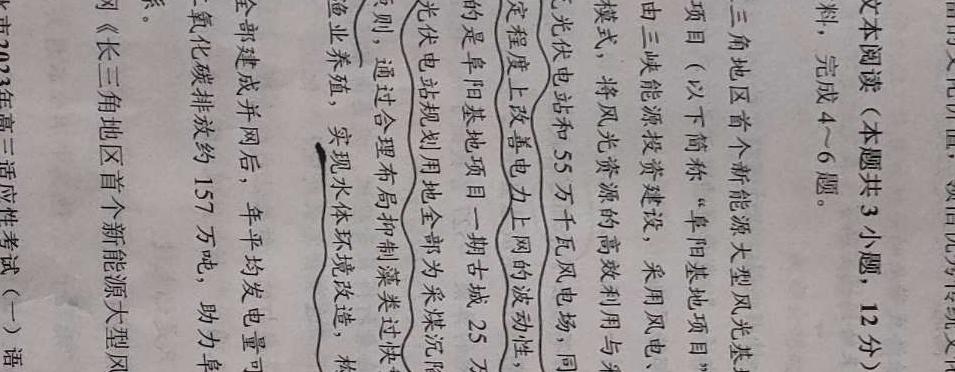 文本阅读（本题共3小题，12分）
料，完成4～6题。
三角地区首个新能源大型风光基
项目（以下简称“阜阳基地项目”
由三峡能源投资建设，采用风电、
模式，将风光资源的高效利用与采
光伏电站和55万千瓦风电场，同
定程度上改善电力上网的波动性，
的是阜阳基地项目一期古城25万
光伏电站规划用地全部为采煤沉陷
则，通过合理布局抑制藻类过快
渔业养殖，实现水体环境改造，构
全部建成并网后，年平均发电量可
氧化碳排放约157万吨，助力阜
系。
网《长三角地区首个新能源大型风
市2023年高三适应性考试（一）语